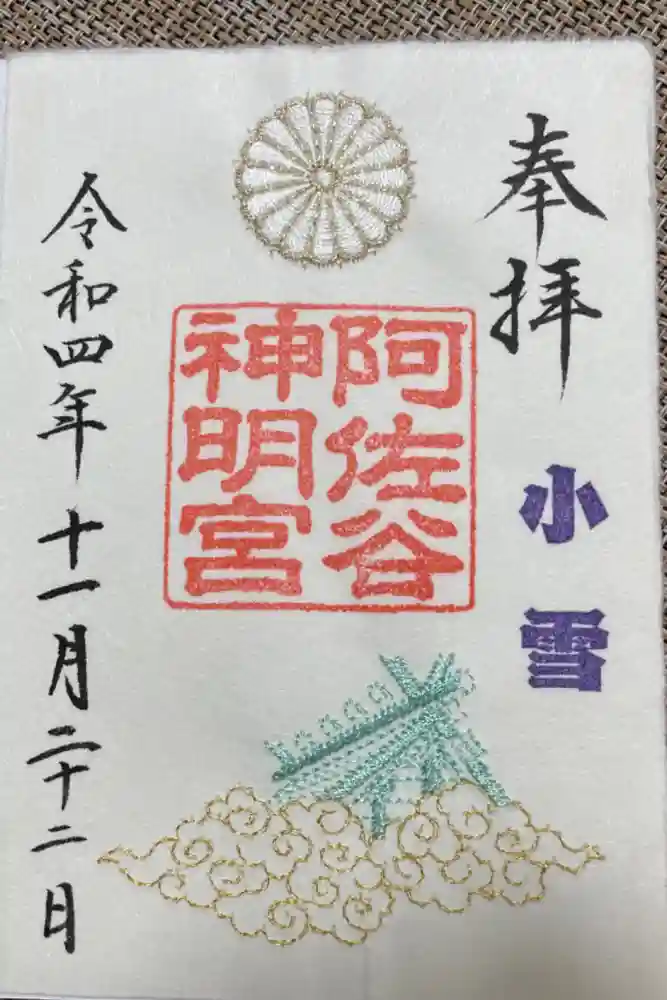 奉拝
小雪
阿佐谷
神明宮
令和四年十一月二十二日